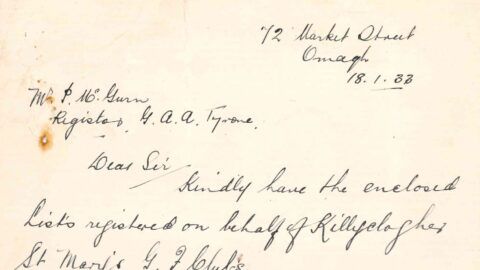 72 Market Street
Omagh
18.1.33
Mr P. McGurn
Registrar G.A.A. Tyrone.
Dear Sir
Kindly have the enclosed
Lists registered on behalf of Killyclogher
St Mary's G F Clubs